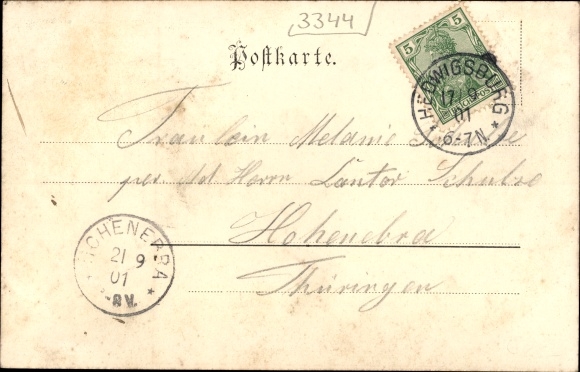 3344
Postkarte.
5
HEDWIGSBURG
17 9
01
6-7N.
Fräulein Melanie
per. Ad. Herrn Cantor Schulze
Hohenebra
Thüringen
HOHENEBRA
21 9
01
-8V.